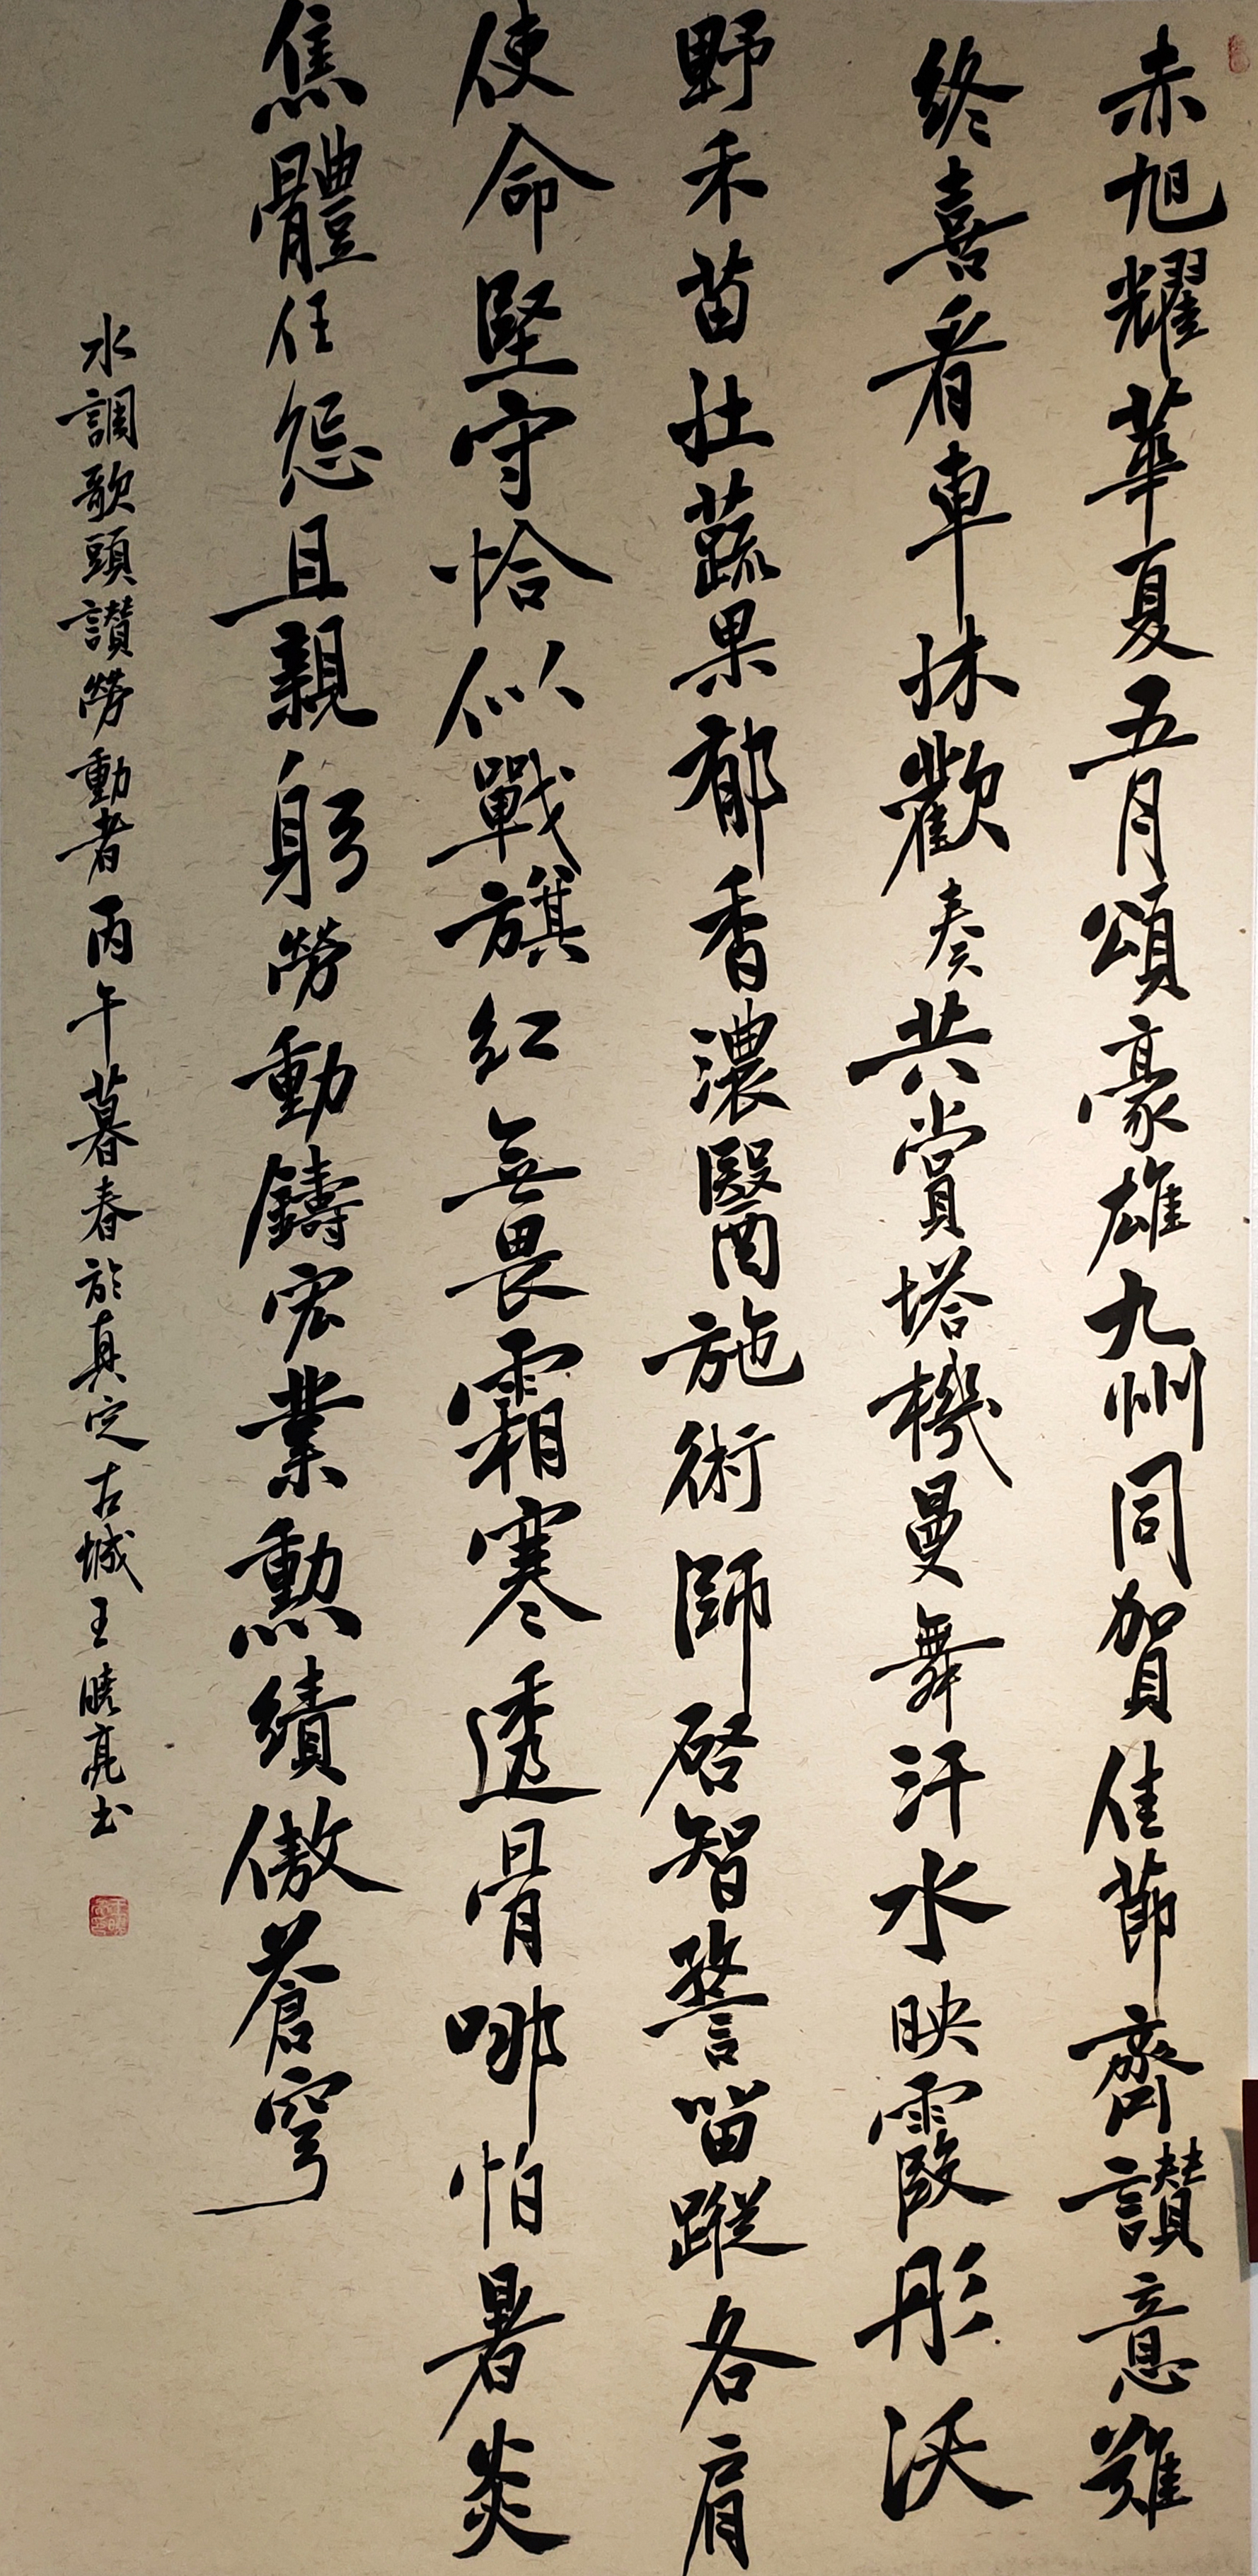 赤旭耀華夏五月頌豪雄九州同賀佳節齊讚意難
終喜看車床歡奏共賞塔機曼舞汗水映霞彤沃
野禾苗壯蔬果郁香濃醫施術師啓智警留蹤各肩
使命堅守恰似戰旗红無畏霜寒透骨哪怕暑炎
焦體任怨且親躬勞動鑄宏業勳績傲蒼穹
水調歌頭讚勞動者丙午暮春於真定古城王曉亮书